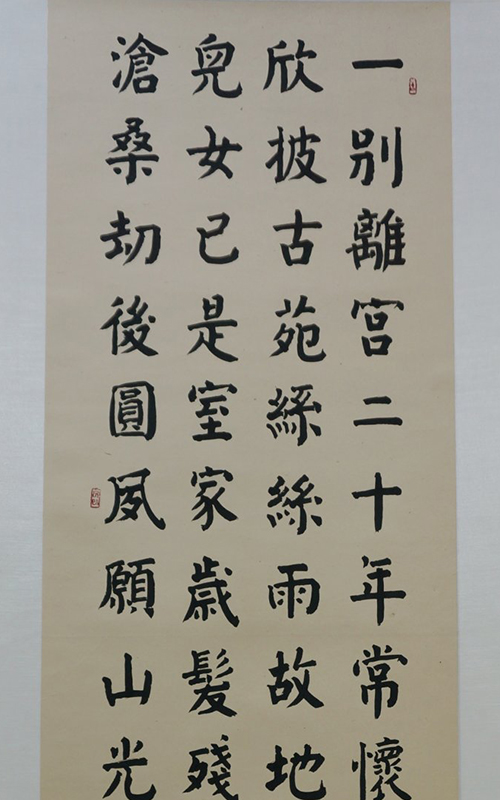 一别離宫二十年常懷
欣披古苑絲絲雨故地
兒女已是室家歲髮殘
滄桑劫後圓夙願山光